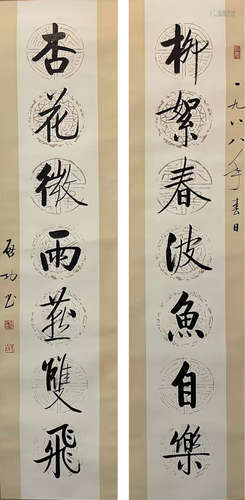 一九八八年春日
柳絮春波魚自樂
杏花微雨燕雙飛
啟功書